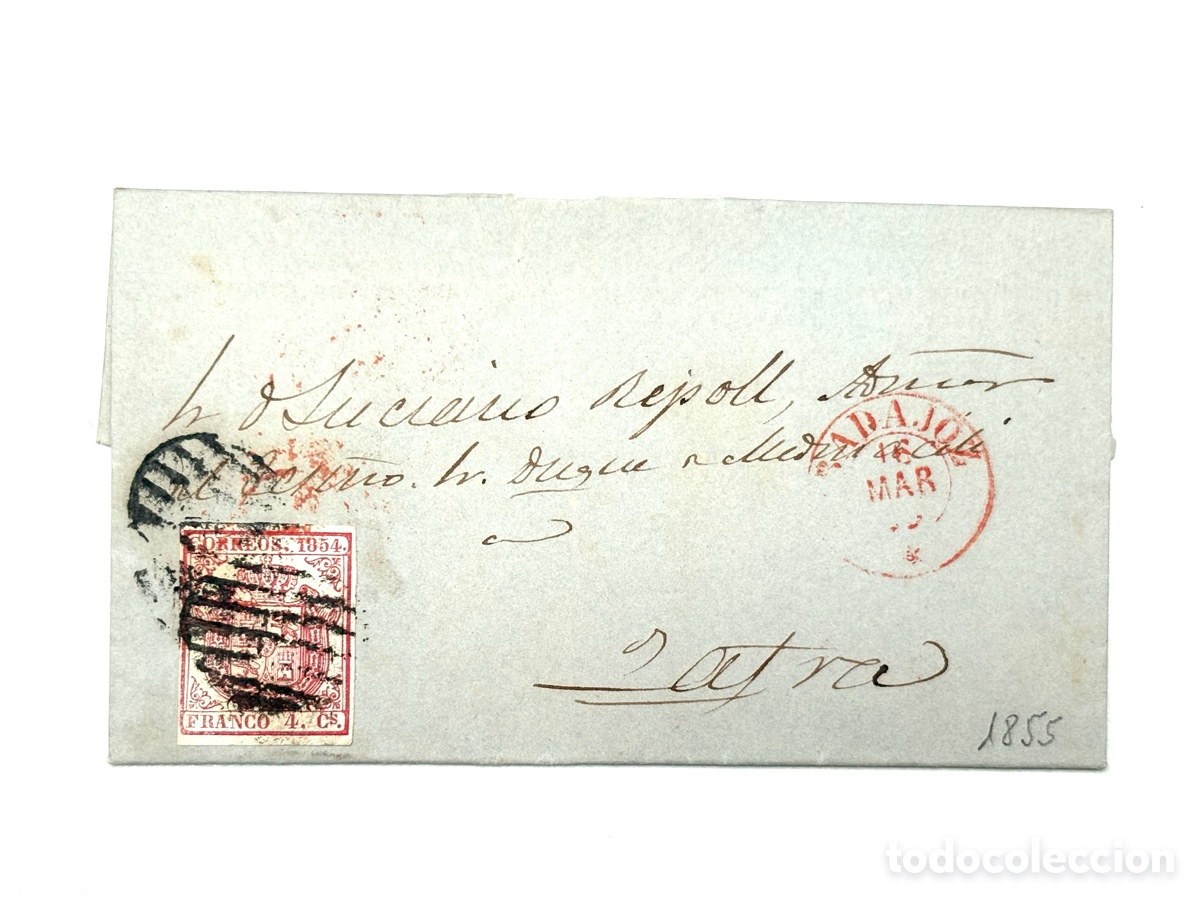 Sr. D. Luciano Ripoll, Admor
del Excmo. Sr. Duque de Medinaceli
a
Zafra
BADAJOZ
16
MAR
CORREOS. 1854.
FRANCO 4. Cs.
1855
todocoleccion